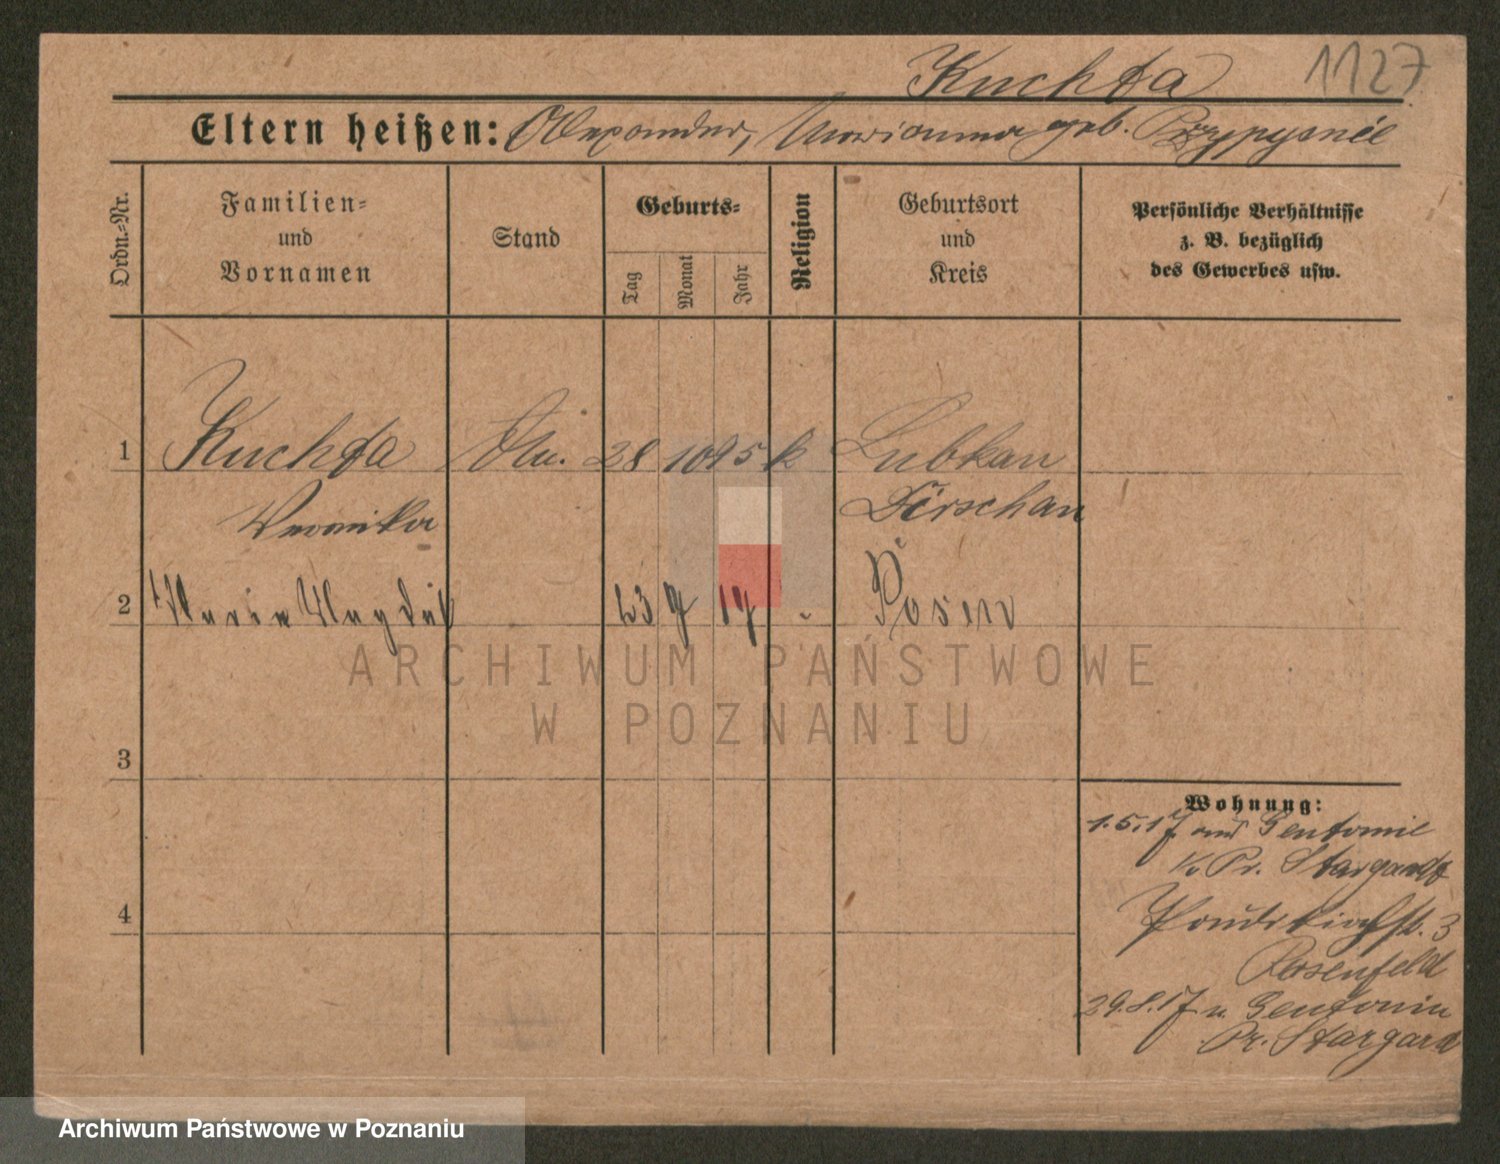 Kuchta 1127
Eltern heißen: Alexander, Marianna geb.
Ordn.-Nr. Familien- und Vornamen Stand Geburts- Tag Monat Jahr Religion Geburtsort und Kreis Persönliche Verhältnisse z. B. bezüglich des Gewerbes usw.
1 Kuchta 28 10 95 k Lubkau
Veronika Dirschau
2 Maria 23 7 17 - Posen
3
Wohnung:
1.5.17 aus Gentomie
Kr. Pr. Stargardt
3
4
Rosenfeld
29.8.17 n. Gentomie
Pr. Stargard
ARCHIWUM PAŃSTWOWE
W POZNANIU
Archiwum Państwowe w Poznaniu